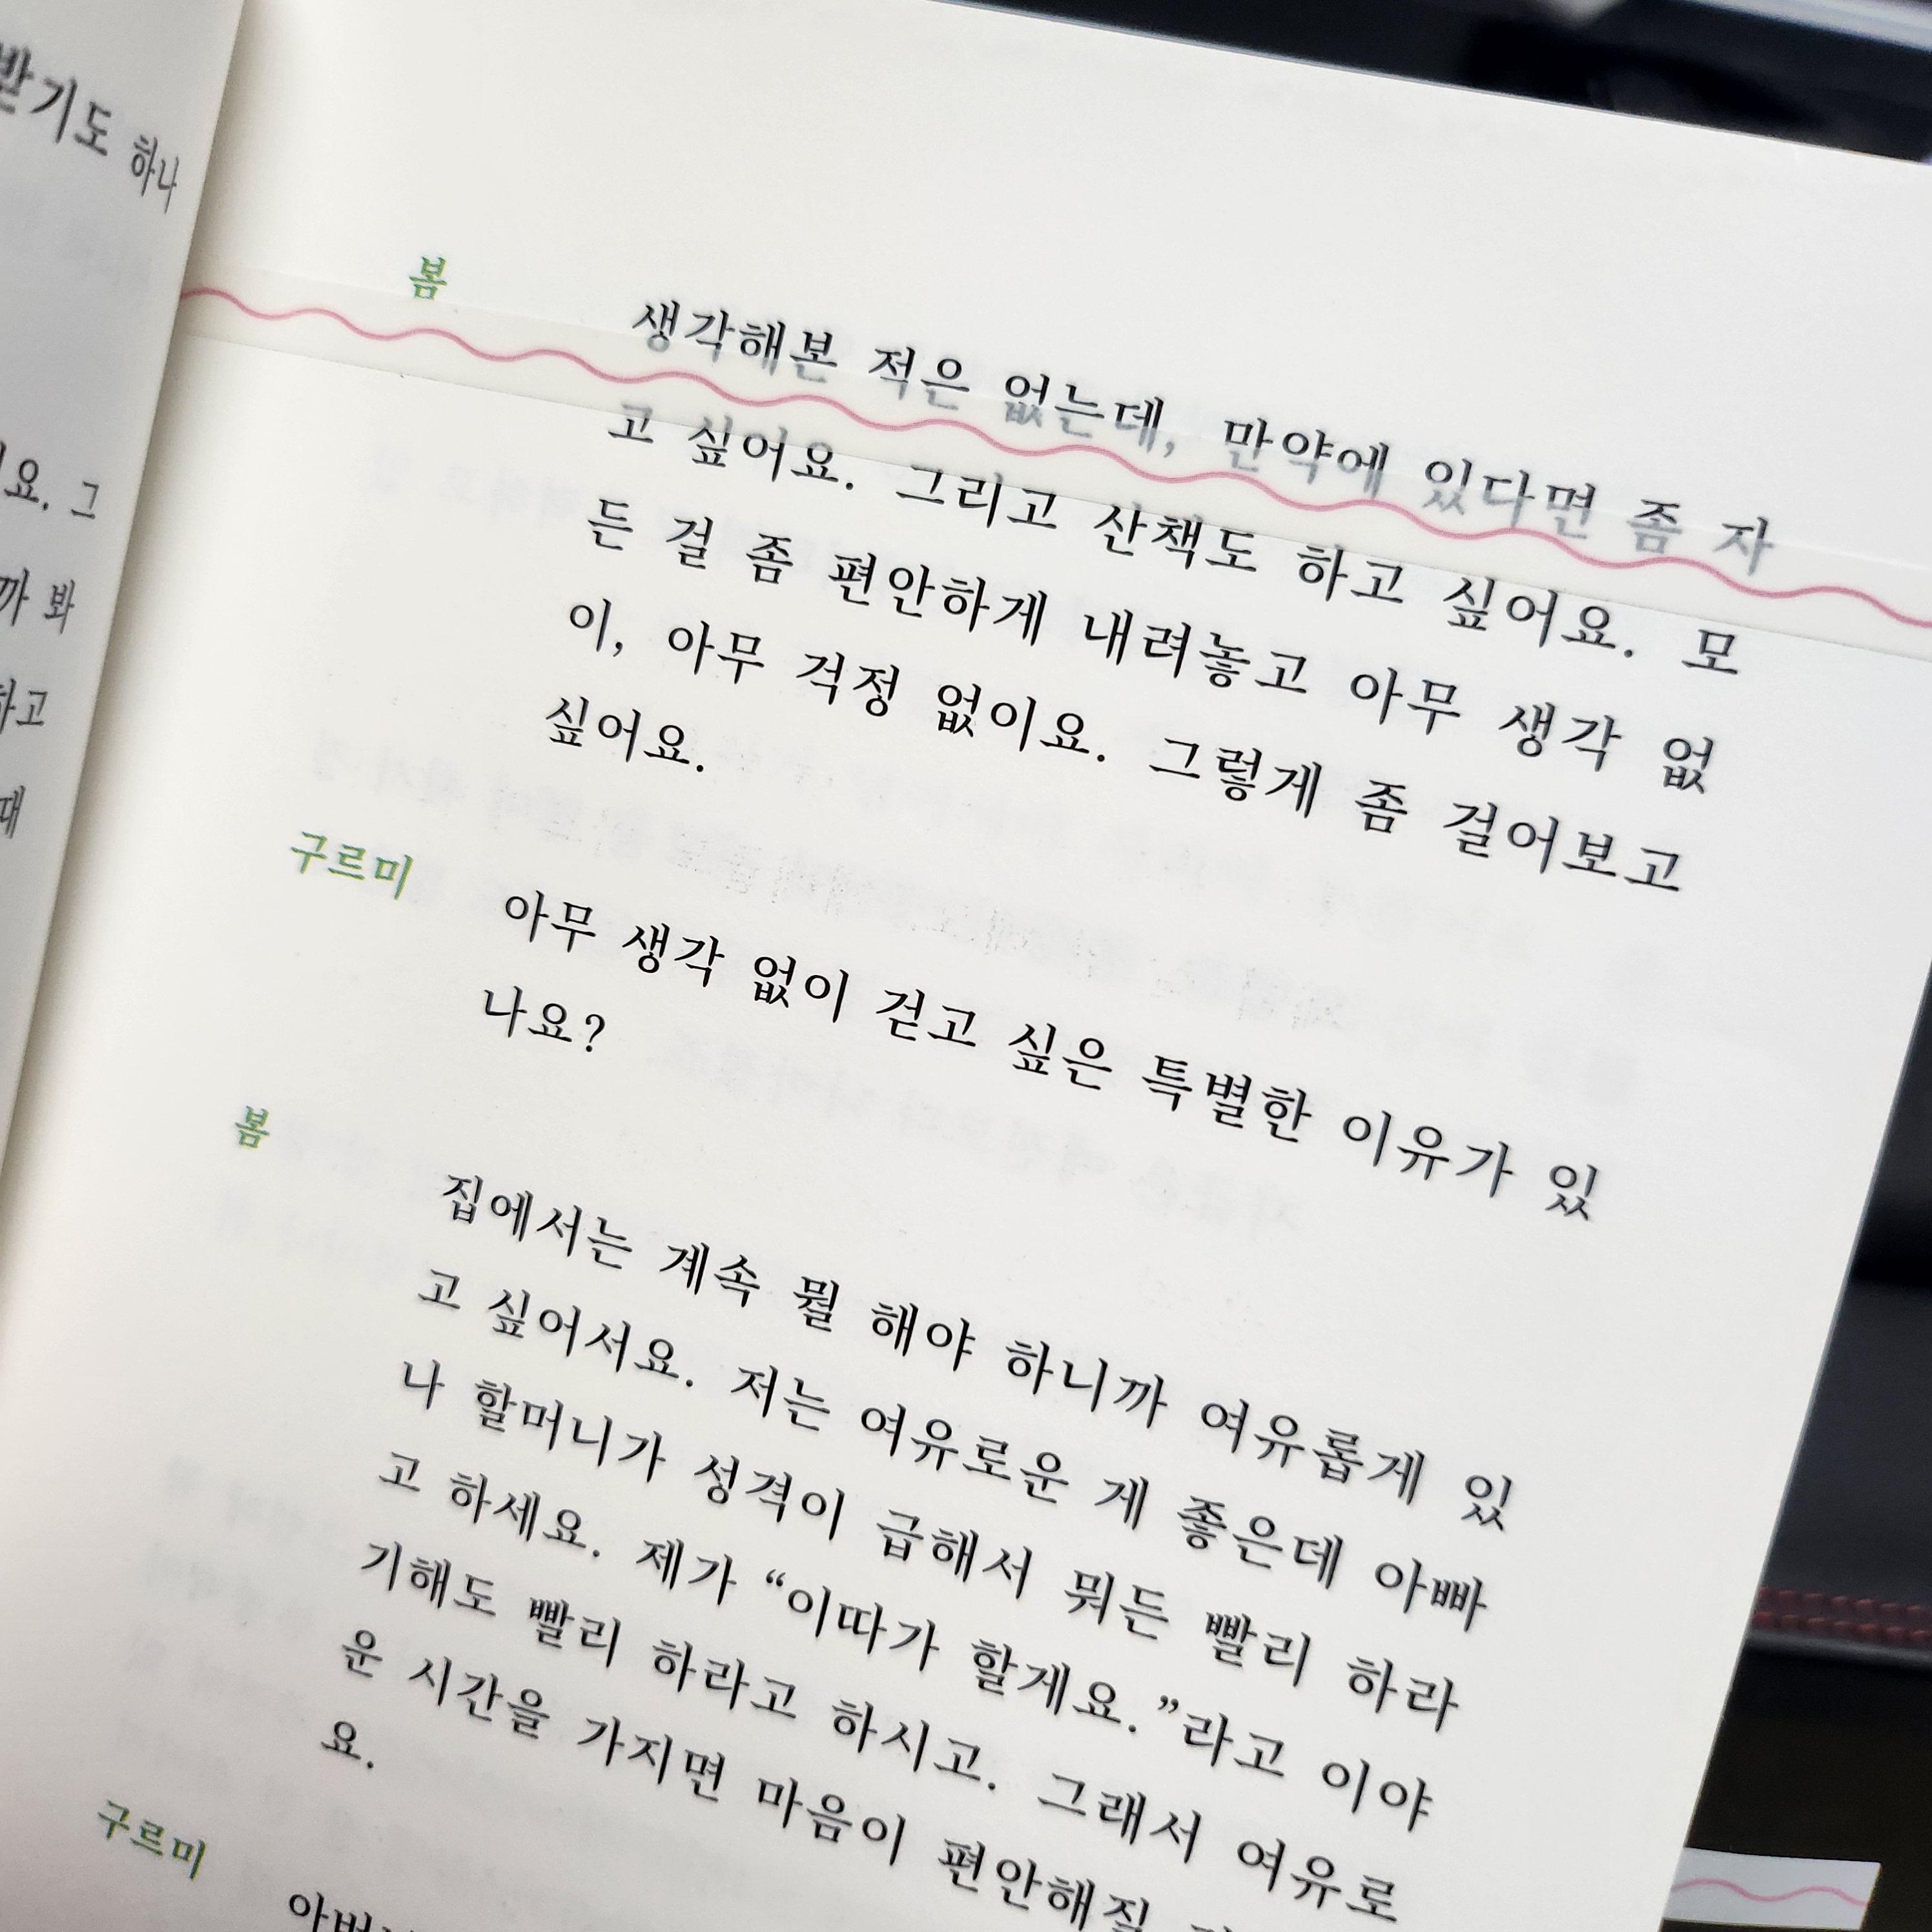 받기도 하나
요. 그
까 봐
하고
때
봄
생각해본 적은 없는데, 만약에 있다면 좀 자
고 싶어요. 그리고 산책도 하고 싶어요. 모
든 걸 좀 편안하게 내려놓고 아무 생각 없
이, 아무 걱정 없이요. 그렇게 좀 걸어보고
싶어요.
구르미
아무 생각 없이 걷고 싶은 특별한 이유가 있
나요?
봄
집에서는 계속 뭘 해야 하니까 여유롭게 있
고 싶어서요. 저는 여유로운 게 좋은데 아빠
나 할머니가 성격이 급해서 뭐든 빨리 하라
고 하세요. 제가 “이따가 할게요.”라고 이야
기해도 빨리 하라고 하시고. 그래서 여유로
운 시간을 가지면 마음이 편안해질
요.
구르미